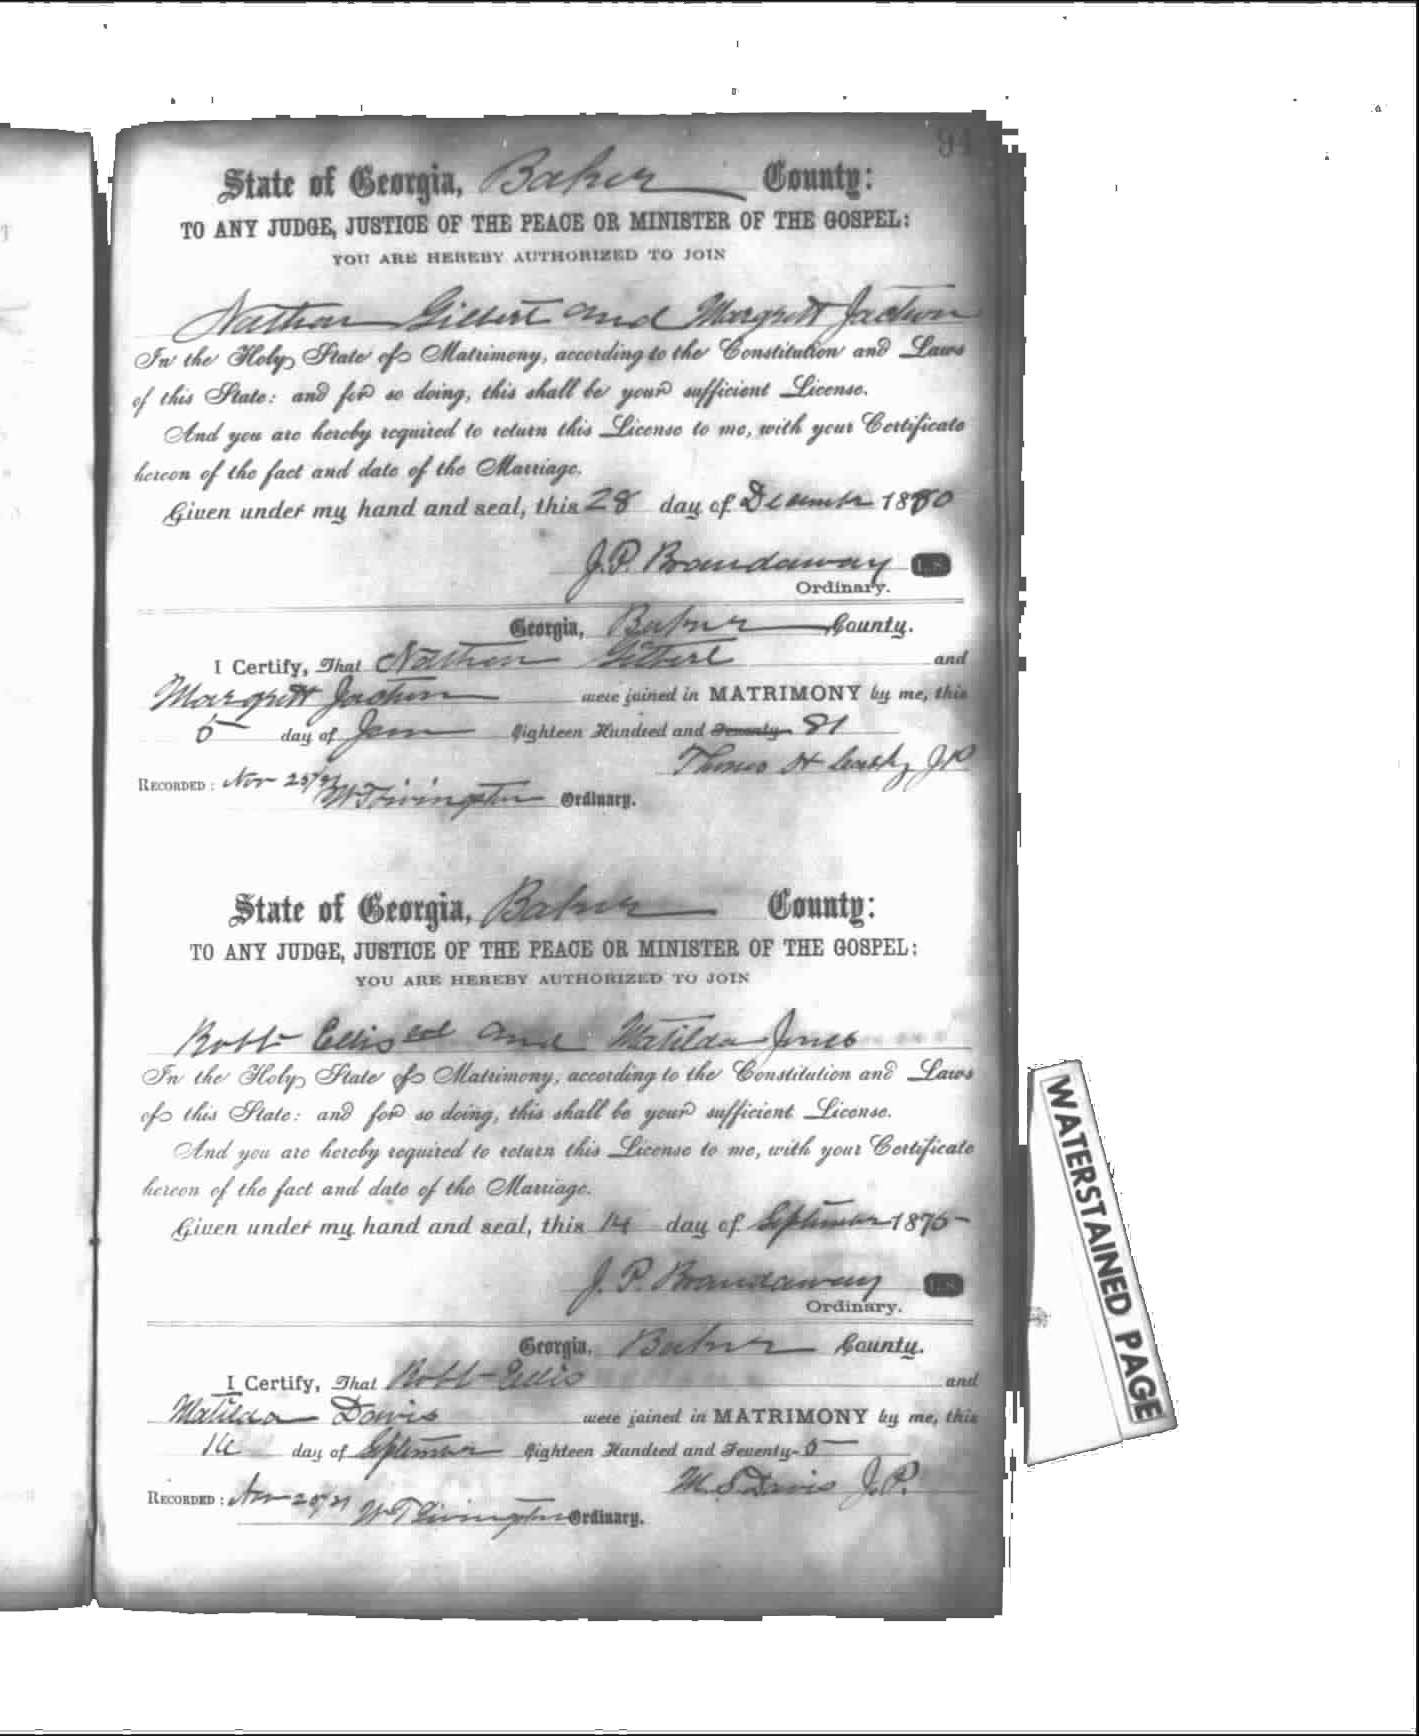 94
State of Georgia, Baker County:
TO ANY JUDGE, JUSTICE OF THE PEACE OR MINISTER OF THE GOSPEL:
YOU ARE HEREBY AUTHORIZED TO JOIN
Nathan Gilbert and Margrett Jackson
In the Holy State of Matrimony, according to the Constitution and Laws
of this State: and for so doing, this shall be your sufficient License.
And you are hereby required to return this License to me, with your Certificate
hereon of the fact and date of the Marriage.
Given under my hand and seal, this 28 day of December 1880
J. P. Brandaway L.S.
Ordinary.
Georgia, Baker County.
I Certify, That Nathan Gilbert and
Margrett Jackson were joined in MATRIMONY by me, this
5 day of Jan Eighteen Hundred and Seventy 81
Thomas H J P
RECORDED: Nov 25/81 W T Livingston Ordinary.
State of Georgia, Baker County:
TO ANY JUDGE, JUSTICE OF THE PEACE OR MINISTER OF THE GOSPEL:
YOU ARE HEREBY AUTHORIZED TO JOIN
Robt Ellis col and Matilda Jones
In the Holy State of Matrimony, according to the Constitution and Laws
of this State: and for so doing, this shall be your sufficient License.
And you are hereby required to return this License to me, with your Certificate
hereon of the fact and date of the Marriage.
Given under my hand and seal, this 14 day of September 1875
J. P. Brandaway L.S.
Ordinary.
Georgia, Baker County.
I Certify, That Robt Ellis and
Matilda Davis were joined in MATRIMONY by me, this
14 day of September Eighteen Hundred and Seventy-5
M. S. Davis J. P.
RECORDED: Nov 25/81 W T Livingston Ordinary.
WATERSTAINED PAGE